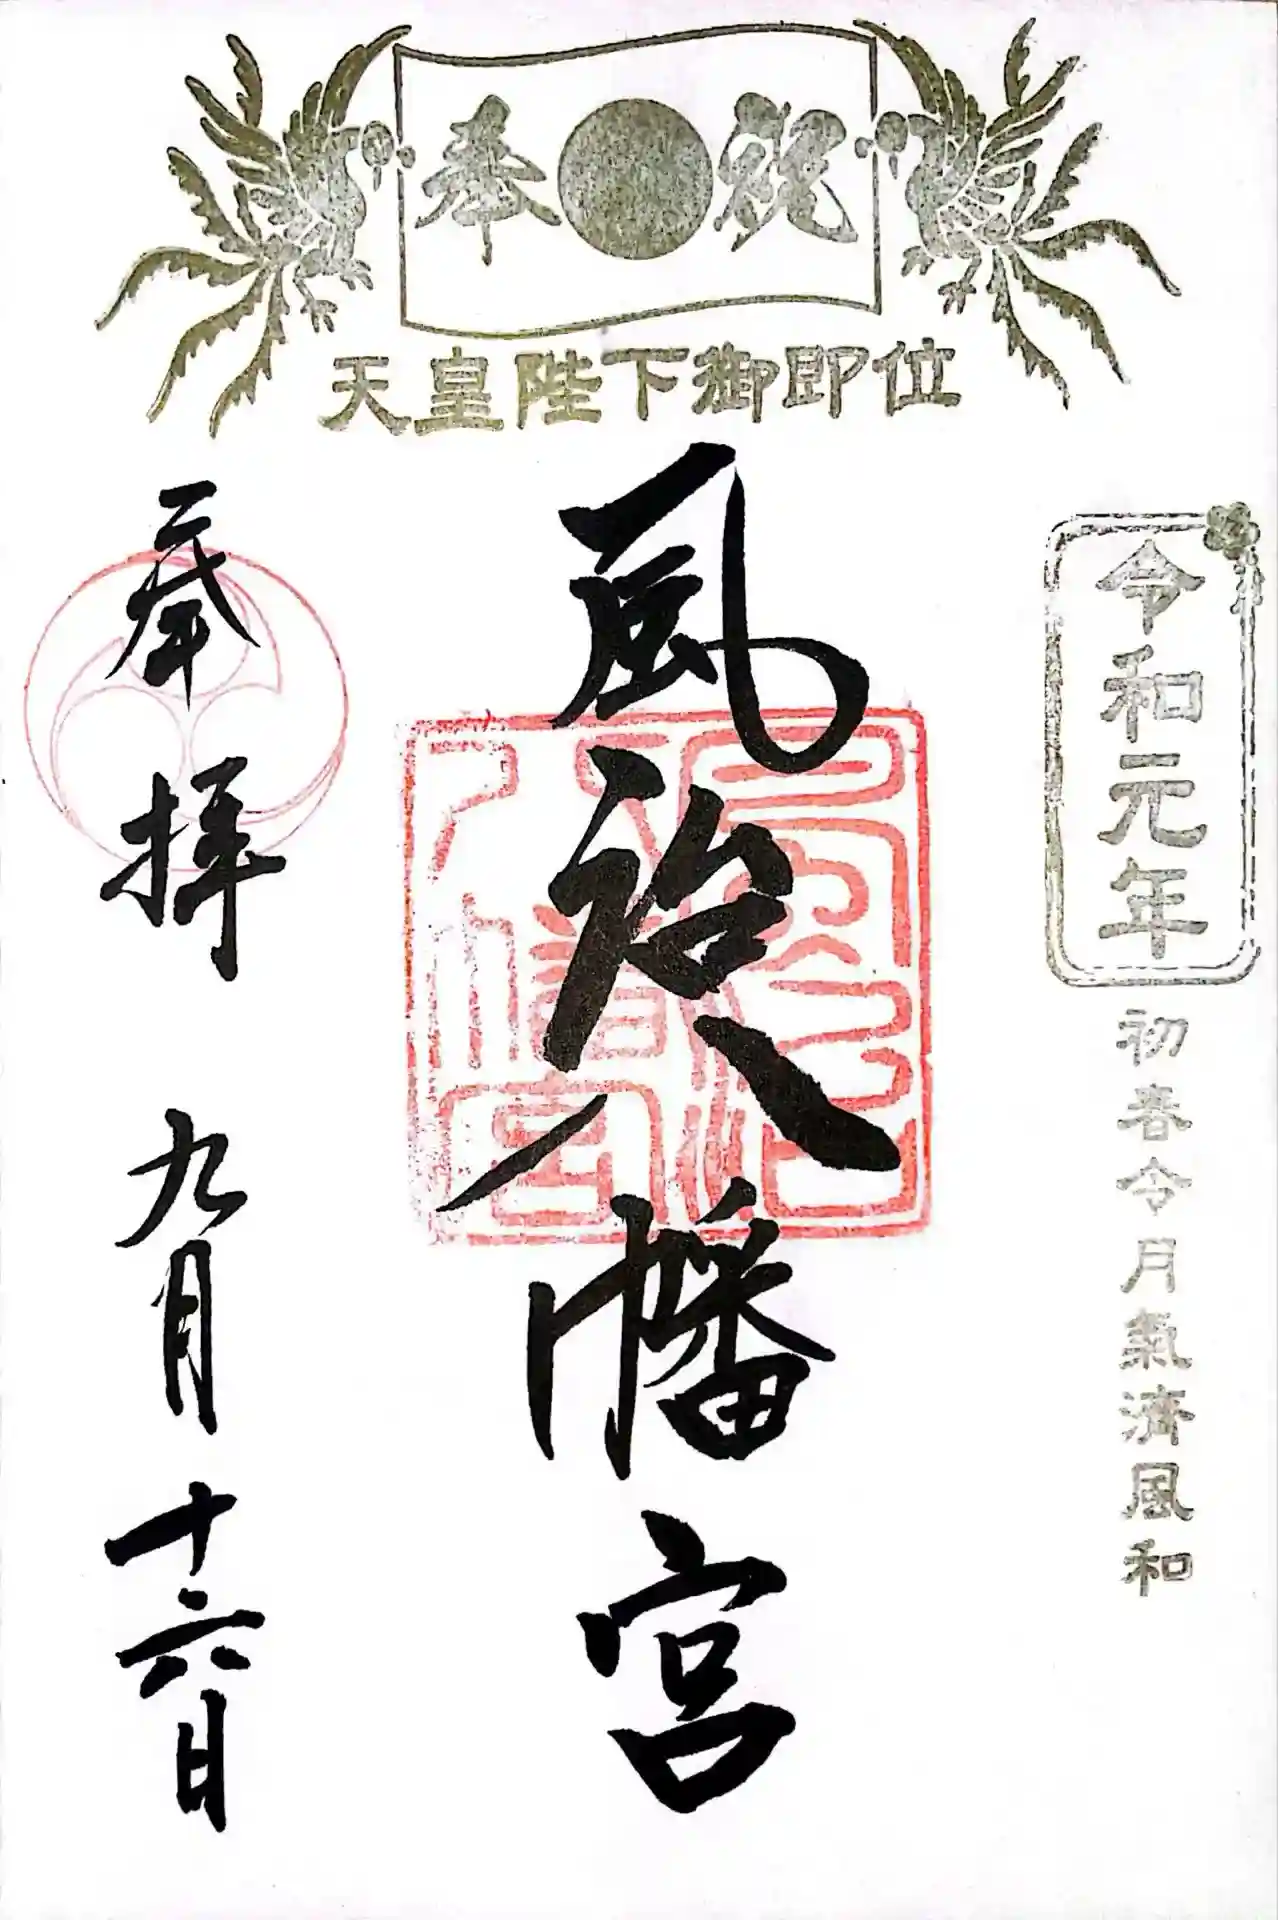 奉祝
天皇陛下御即位
令和元年
初春令月氣淑風和
風治八幡宮
奉拝
九月十六日